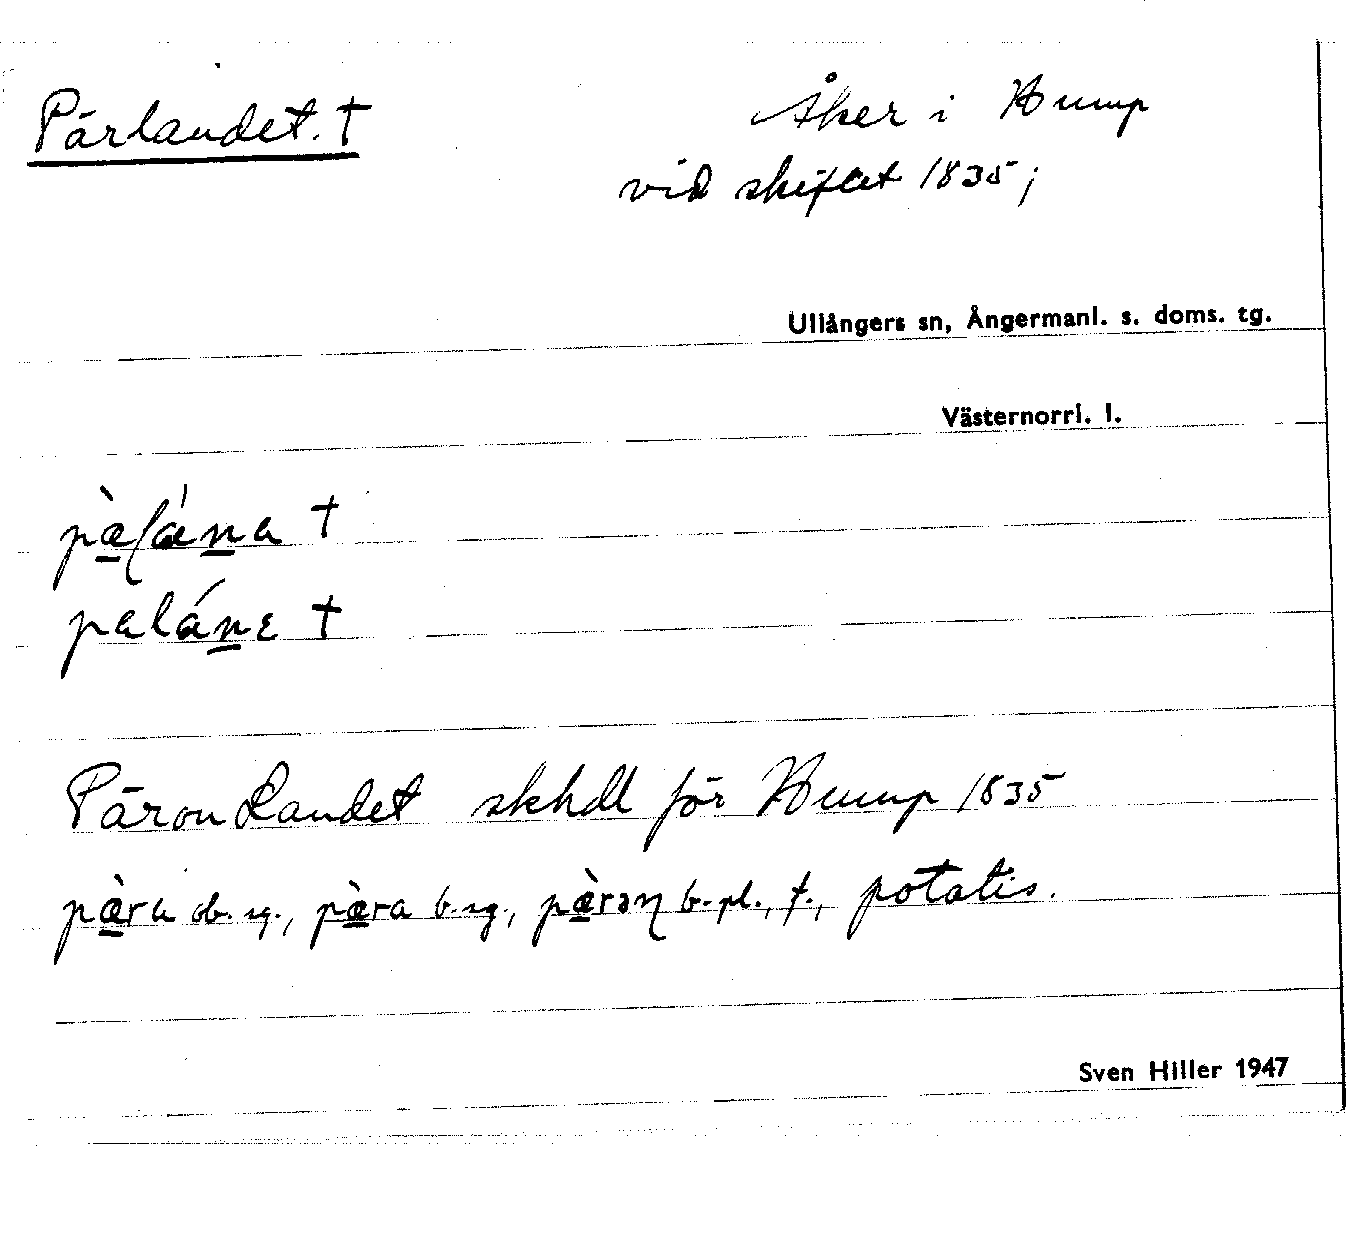 Pärlandet. †
Åker i Hump
vid skiftet 1835;
Ullångers sn, Ångermanl. s. doms. tg.
Västernorrl. l.
†
†
Päron Landet skhdl för Hump 1835
ob. sg., b. sg., b. pl., f., potatis.
Sven Hiller 1947